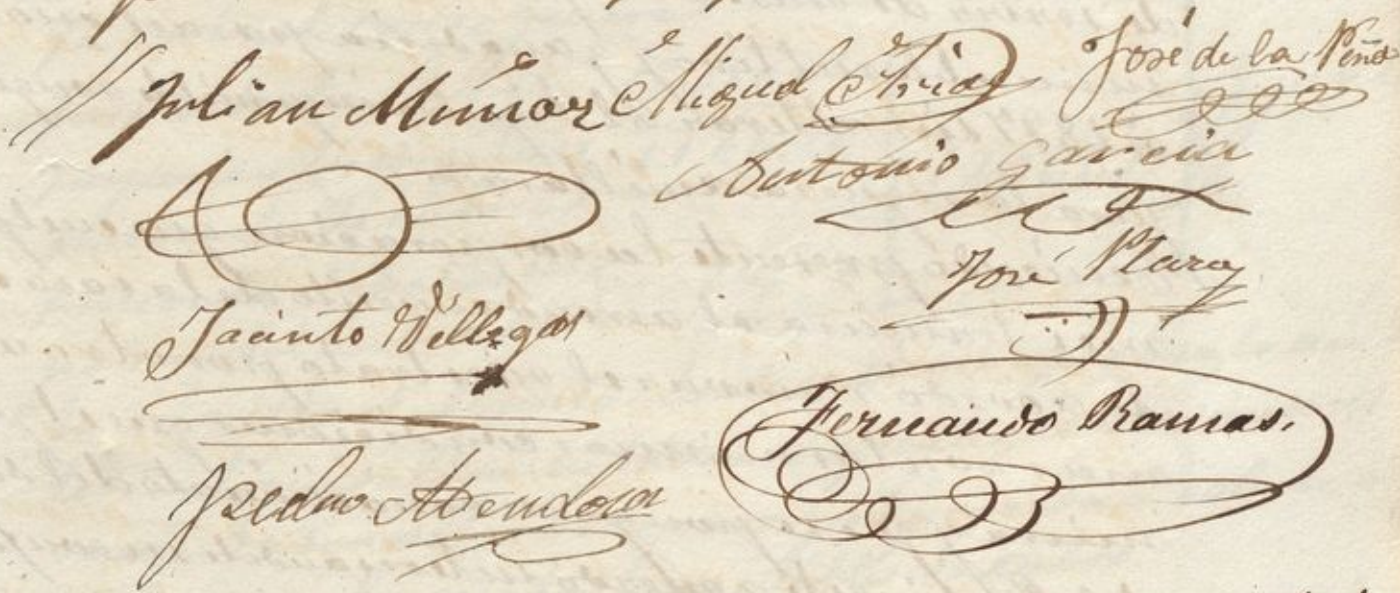 Julian Muñoz Miguel Arias José de la Peña
Antonio Garcia
José Plaza
Jacinto Villegas
Fernando Ramas.
Pedro Mendosa